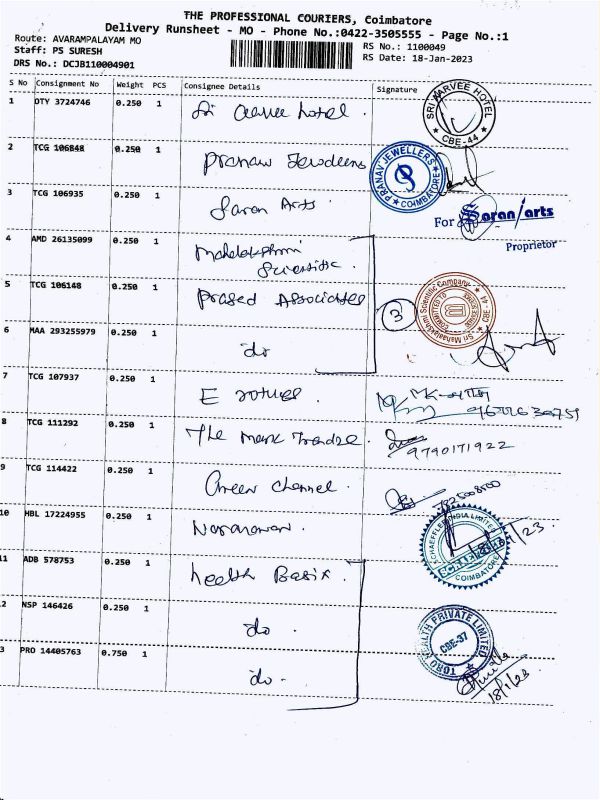 THE PROFESSIONAL COURIERS, Coimbatore
Delivery Runsheet - MO - Phone No.:0422-3505555 - Page No.:1
Route: AVARAMPALAYAM MO
RS No.: 1100049
Staff: PS SURESH
RS Date: 18-Jan-2023
DRS No.: DCJB110004901
S No Consignment No Weight PCS Consignee Details Signature
1 DTY 3724746 0.250 1 Sri Aarvee hotel.
SRI AARVEE HOTEL
CBE-44
2 TCG 106848 0.250 1 Pranav Jewellers
PRANAV JEWELLERS
COIMBATORE
3 TCG 106935 0.250 1 Saran Arts.
For Saran arts
Proprietor
4 AMD 26135099 0.250 1 Mahalakshmi
Scientific.
5 TCG 106148 0.250 1 Prasad Associates
3
Sri Mahalakshmi Scientific Company
6 MAA 293255979 0.250 1 do
7 TCG 107937 0.250 1 E
8 TCG 111292 0.250 1 The Mark Trendz.
9790171922
9 TCG 114422 0.250 1 Green Channel.
10 HBL 17224955 0.250 1 Narayanan.
SCHAEFFLER INDIA LIMITED
COIMBATORE
11 ADB 578753 0.250 1 health Basix.
2 NSP 146426 0.250 1 do.
TORO HEALTH PRIVATE LIMITED
CBE-37
3 PRO 14405763 0.750 1 do.
18/1/23